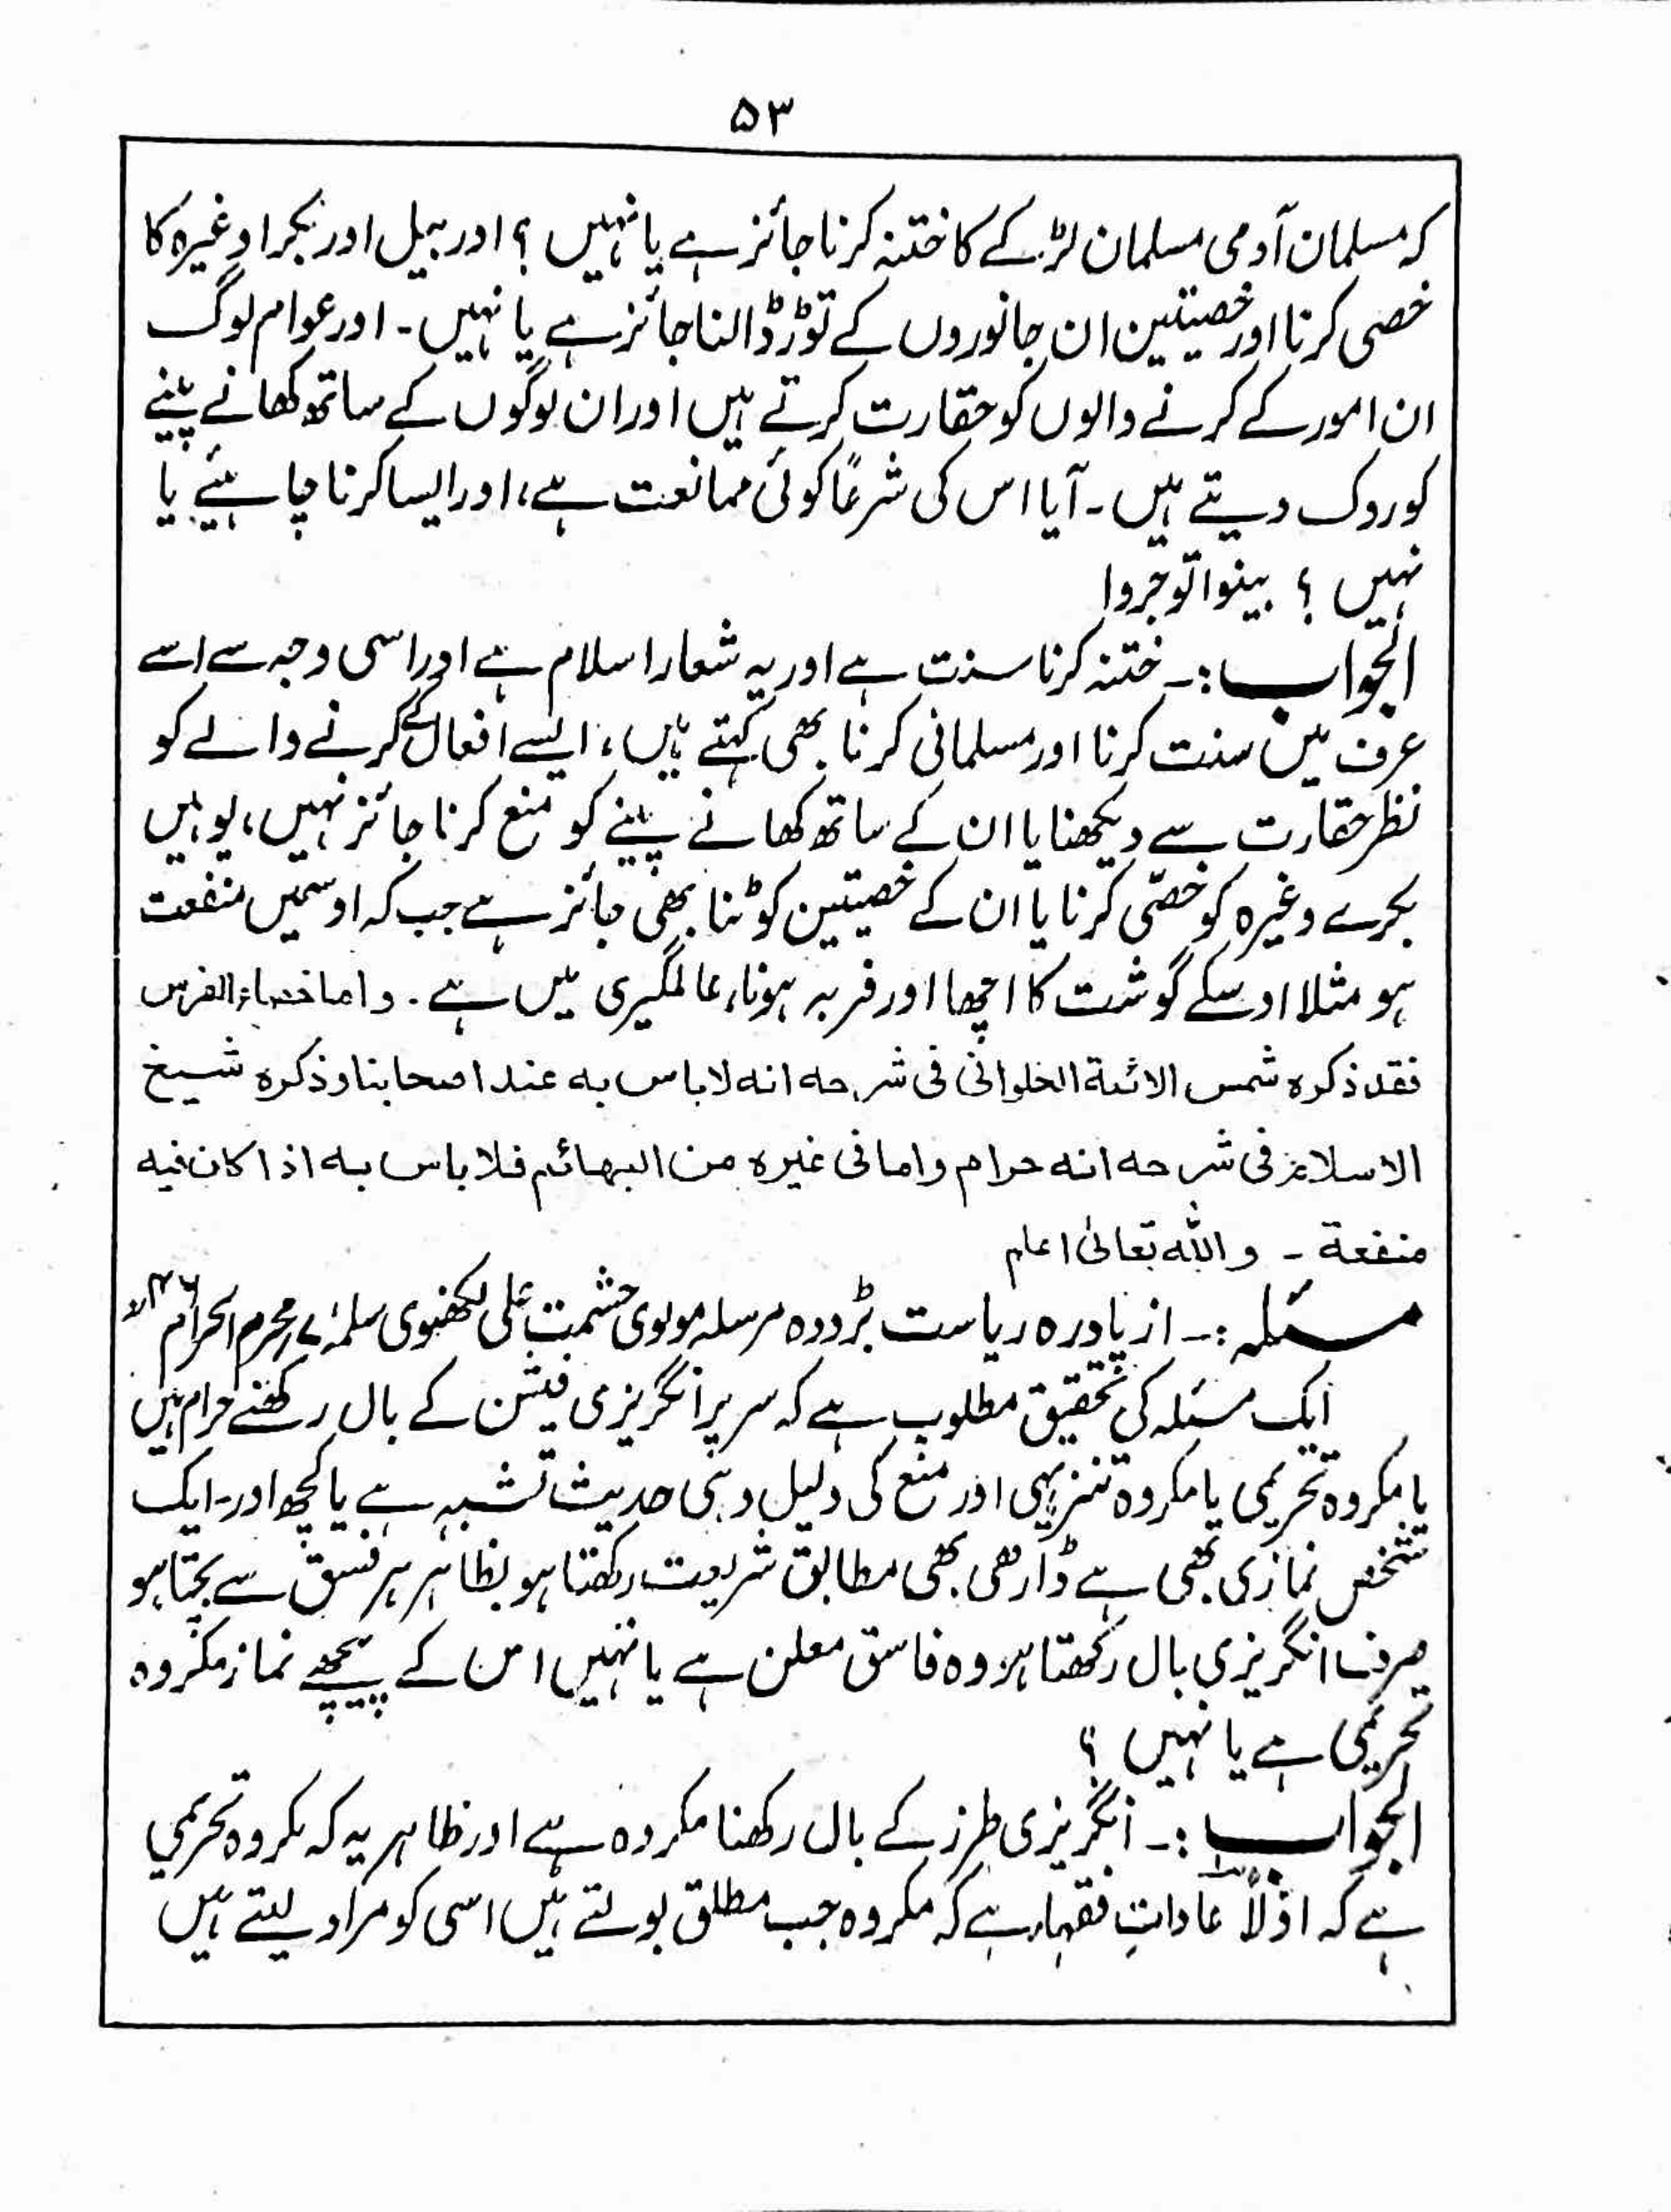 ۵۳
کہ مسلمان آدمی مسلمان لڑکے کا ختنہ کرنا جائز ہے یا نہیں ؟ اور بیل اور بکرا وغیرہ کا
خصی کرنا اور خصیتین ان جانوروں کے توڑ ڈالنا جائز ہے یا نہیں ۔ اور عوام لوگ
ان امور کے کرنے والوں کو حقارت کرتے ہیں اور ان لوگوں کے ساتھ کھانے پینے
کو روک دیتے ہیں ۔ آیا اس کی شرعًا کوئی ممانعت ہے، اور ایسا کرنا چاہئیے یا
نہیں ؟ بینوا توجروا
الجواب :۔ ختنہ کرنا سنت ہے اور یہ شعار اسلام ہے اور اسی وجہ سے اسے
عرف میں سنت کرنا اور مسلمانی کرنا بھی کہتے ہیں، ایسے افعال کے کرنے والے کو
نظر حقارت سے دیکھنا یا ان کے ساتھ کھانے پینے کو منع کرنا جائز نہیں، یوہیں
بکرے وغیرہ کو خصّی کرنا یا ان کے خصیتین کوٹنا بھی جائز ہے جب کہ اوسمیں منفعت
ہو مثلا اوسکے گوشت کا اچھا اور فربہ ہونا، عالمگیری میں ہے ۔ واما خصاء الفرس
فقد ذکرہ شمس الائمة الحلوانی فی شرحه انه لا باس به عند اصحابنا وذکرہ شیخ
الاسلام فی شرحه انه حرام واما فی غیرہ من البھائم فلا باس به اذا کان فیه
منفعة ۔ واللہ تعالیٰ اعلم
مسئلہ :۔ از پادرہ ریاست بڑودہ مرسلہ مولوی حشمت علی لکھنوی سلمہٗ ۷ محرم الحرام ۴۶ھ
ایک مسئلہ کی تحقیق مطلوب ہے کہ سر پر انگریزی فیشن کے بال رکھنے حرام ہیں
یا مکروہ تحریمی یا مکروہ تنزیہی اور منع کی دلیل وہی حدیث تشبہ ہے یا کچھ اور ۔ ایک
شخص نمازی بھی ہے ڈارھی بھی مطابق شریعت رکھتا ہو بظاہر ہر فسق سے بچتا ہو
صرف انگریزی بال رکھتا ہو وہ فاسق معلن ہے یا نہیں اس کے پیچھے نماز مکروہ
تحریمی ہے یا نہیں ؟
الجواب :۔ انگریزی طرز کے بال رکھنا مکروہ ہے اور ظاہر یہ کہ مکروہ تحریمی
ہے کہ اوّلاً عاداتِ فقہاء ہے کہ مکروہ جب مطلق بولتے ہیں اسی کو مراد لیتے ہیں